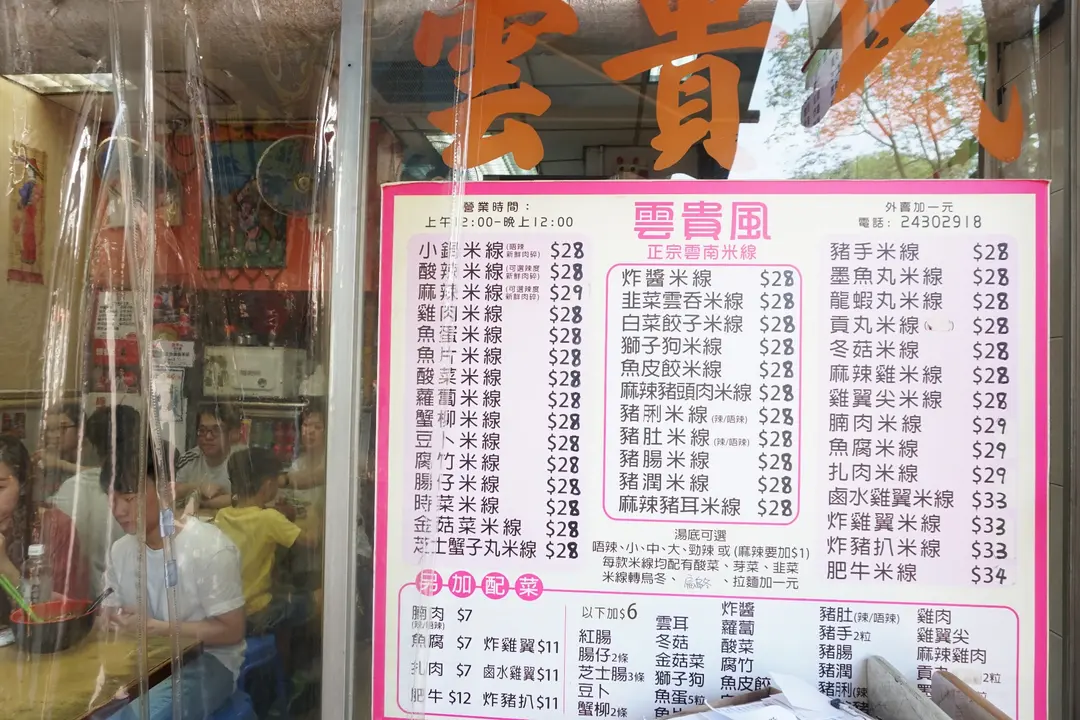 雲貴風
營業時間：
上午12:00-晚上12:00
雲貴風
正宗雲南米線
外賣加一元
電話: 24302918
小鍋米線(唔辣 新鮮肉碎) $28
酸辣米線(可選辣度 新鮮肉碎) $28
麻辣米線(可選辣度 新鮮肉碎) $29
雞肉米線 $28
魚蛋米線 $28
魚片米線 $28
酸菜米線 $28
蘿蔔米線 $28
蟹柳米線 $28
豆卜米線 $28
腐竹米線 $28
腸仔米線 $28
時菜米線 $28
金菇菜米線 $28
芝士蟹子丸米線 $28
炸醬米線 $28
韭菜雲吞米線 $28
白菜餃子米線 $28
獅子狗米線 $28
魚皮餃米線 $28
麻辣豬頭肉米線 $28
豬脷米線(辣/唔辣) $28
豬肚米線(辣/唔辣) $28
豬腸米線 $28
豬潤米線 $28
麻辣豬耳米線 $28
湯底可選
唔辣、小、中、大、勁辣 或 (麻辣要加$1)
每款米線均配有酸菜、芽菜、韭菜
米線轉烏冬、 、拉麵加一元
豬手米線 $28
墨魚丸米線 $28
龍蝦丸米線 $28
貢丸米線 $28
冬菇米線 $28
麻辣雞米線 $28
雞尖米線 $28
腩肉米線 $29
魚腐米線 $29
扎肉米線 $29
鹵水雞翼米線 $33
炸雞翼米線 $33
炸豬扒米線 $33
肥牛米線 $34
另加配菜
腩肉 $7
(辣/唔辣)
魚腐 $7 炸雞翼$11
扎肉 $7 鹵水雞翼$11
肥牛 $12 炸豬扒$11
以下加$6
紅腸
腸仔2條
芝士腸3條
豆卜
蟹柳2條
雲耳
冬菇
金菇菜
獅子狗
魚蛋5粒
魚片
炸醬
蘿蔔
酸菜
腐竹
魚皮餃
豬肚(辣/唔辣)
豬手2粒
豬腸
豬潤
豬脷(辣
雞肉
雞翼尖
麻辣雞肉
貢丸 2粒